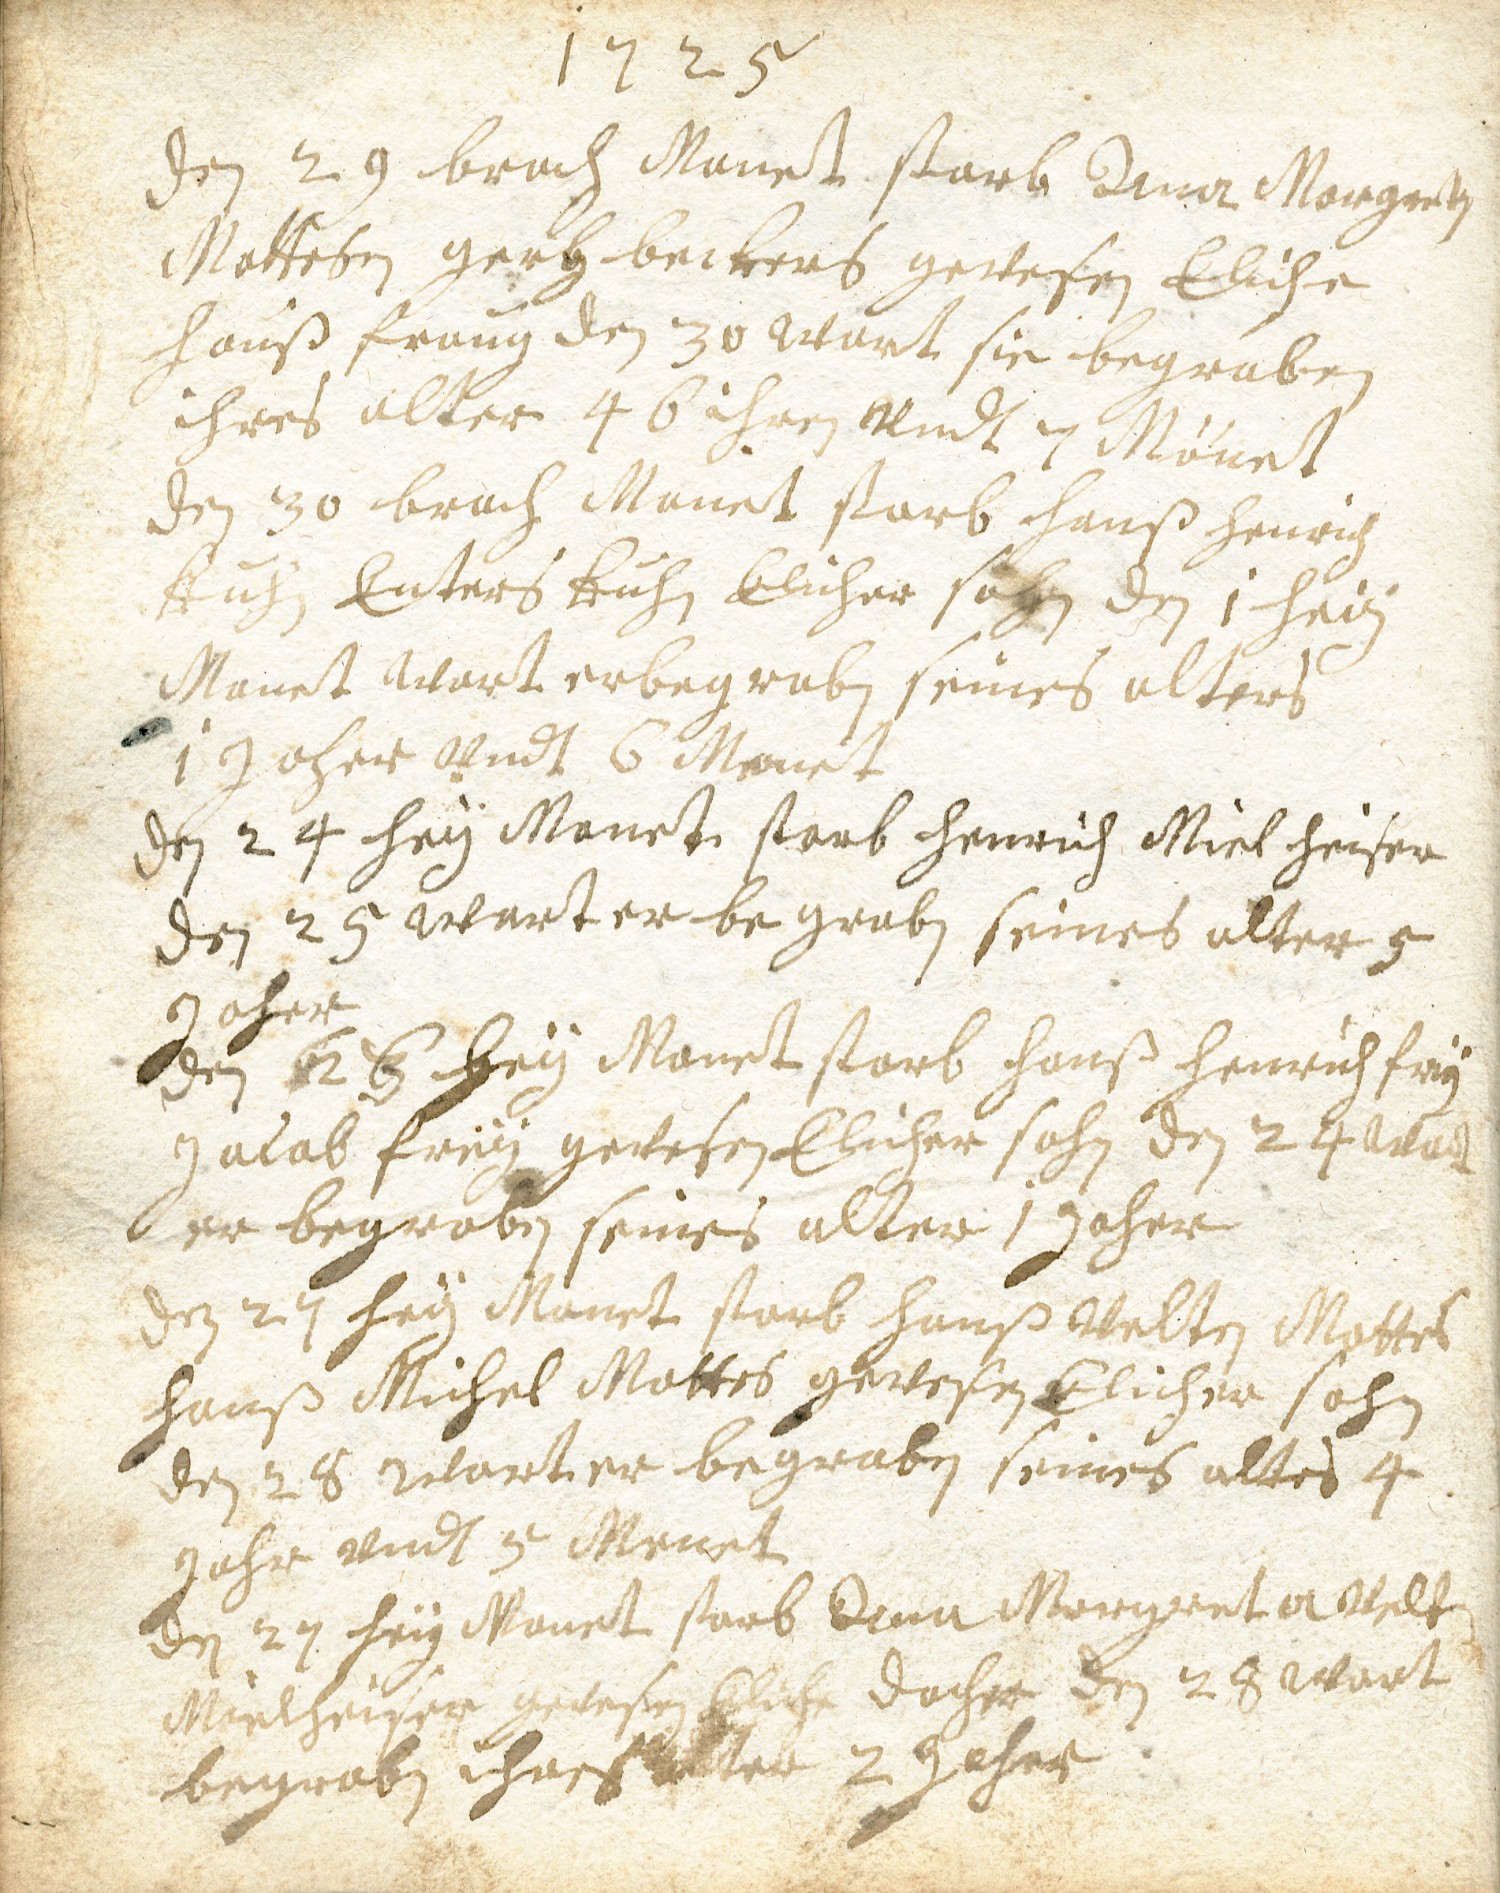 1725
den 29 brach Monet starb Anna Margreta
Mattesen gertz beckers gewesen Eliche
hauß frauy den 30 wart sie begraben
ihres alter 46 ihren vndt 7 Monet
den 30 brach Monet starb hanß henrich
kuhn Enters kuhn Elicher sohn den 1 heiy
Monet wart erbegraben seines alters
1 Jaher vndt 6 Monet
den 24 hey Monet starb henrich Miel heiser
den 25 wart er be graben seines alter 5
Jaher
den 26 hey Monet starb hanß henrich frey
Jacob freÿ gewesen Elicher sohn den 24 wart
er begraben seines alter 1 Jaher
den 27 hey Monet starb hanß velten Mattes
hanß Michel Mattes gewesen Elicher sohn
den 28 wart er begraben seines altes 4
Jahr vndt 5 Monet
den 27 hey Monet starb Anna Margreta velten
Mielheiser gewesen Eliche dochter den 28 wart
begraben ihres alter 2 Jaher